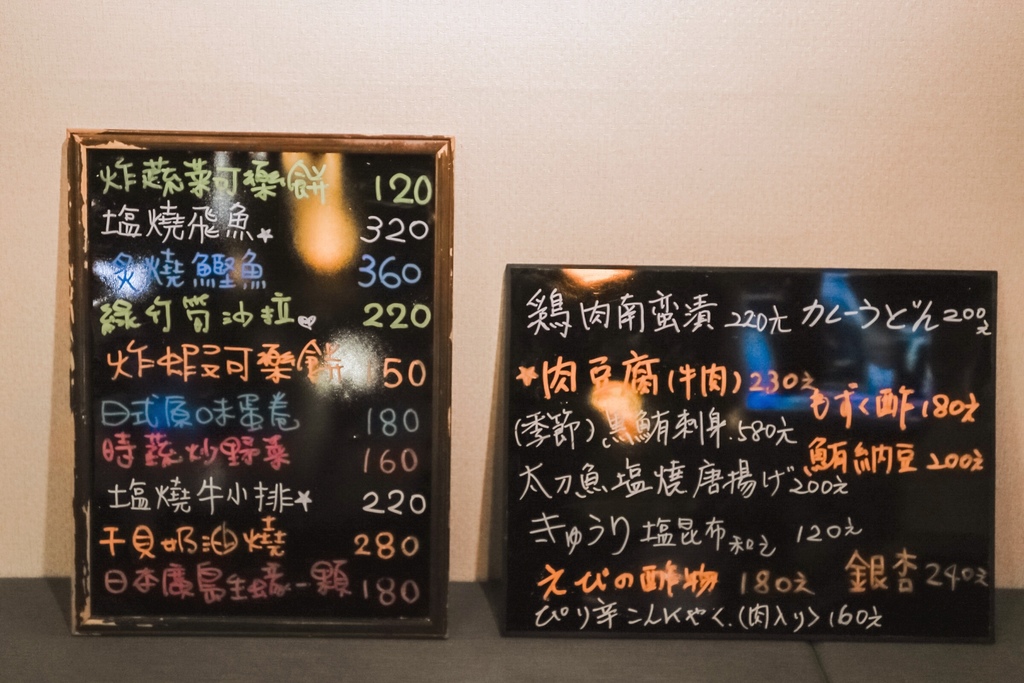 炸蔬菜可樂餅 120
塩燒飛魚 320
炙燒鰹魚 360
綠竹筍沙拉 220
炸蝦可樂餅 150
日式原味蛋卷 180
時蔬炒野菜 160
塩燒牛小排 220
干貝奶油燒 280
日本廣島生蠔一顆 180
鶏肉南蛮漬 220元 カレーうどん 200元
肉豆腐(牛肉) 230元
もずく酢 180元
(季節)黒鮪刺身 580元
鮪納豆 200元
太刀魚塩燒唐揚げ 200元
きゅうり塩昆布和え 120元
えびの酢物 180元 銀杏 240元
ぴり辛こんにゃく(肉入り) 160元